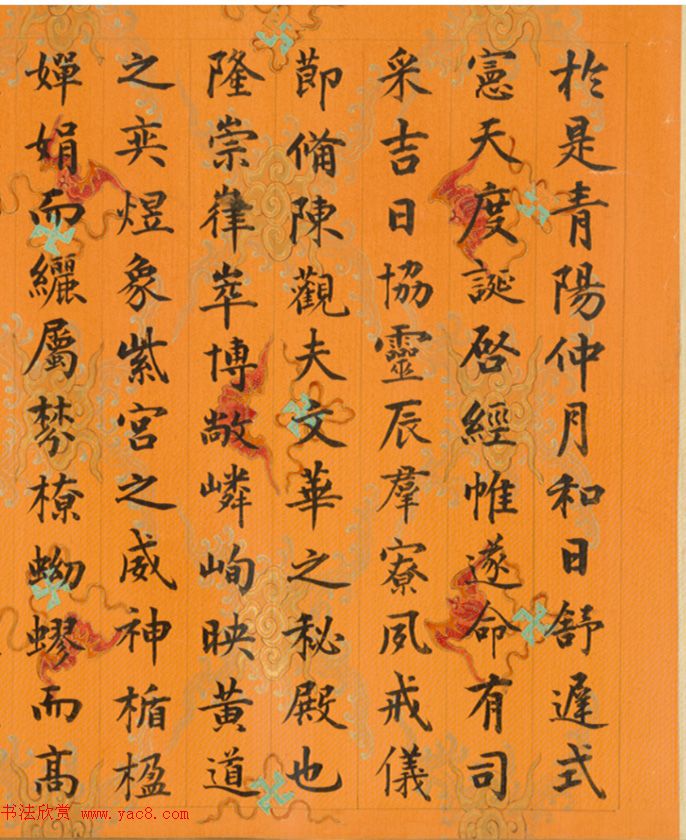 於是青陽仲月和日舒遲式
憲天度誕啓經帷遂命有司
采吉日協靈辰羣寮夙戒儀
節俻陳觀夫文華之秘殿也
隆崇嵂崒博敞嶙峋映黃道
之奕煜象紫宮之威神楯楹
嬋娟而纚屬棼橑蚴蟉而高
书法欣赏 www.yac8.com